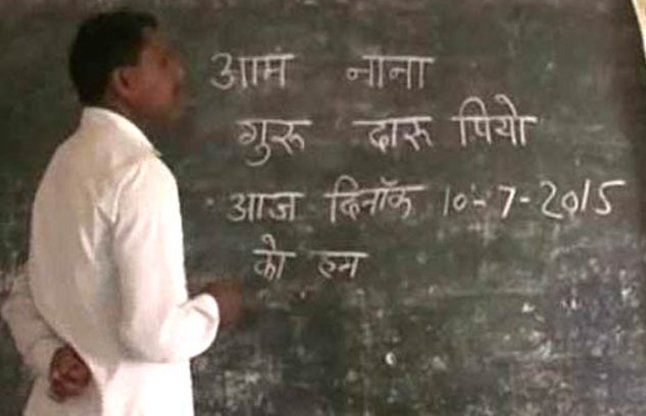 आमं नाना
गुरू दारू पियो
आज दिनॉक 10-7-2015
को हम